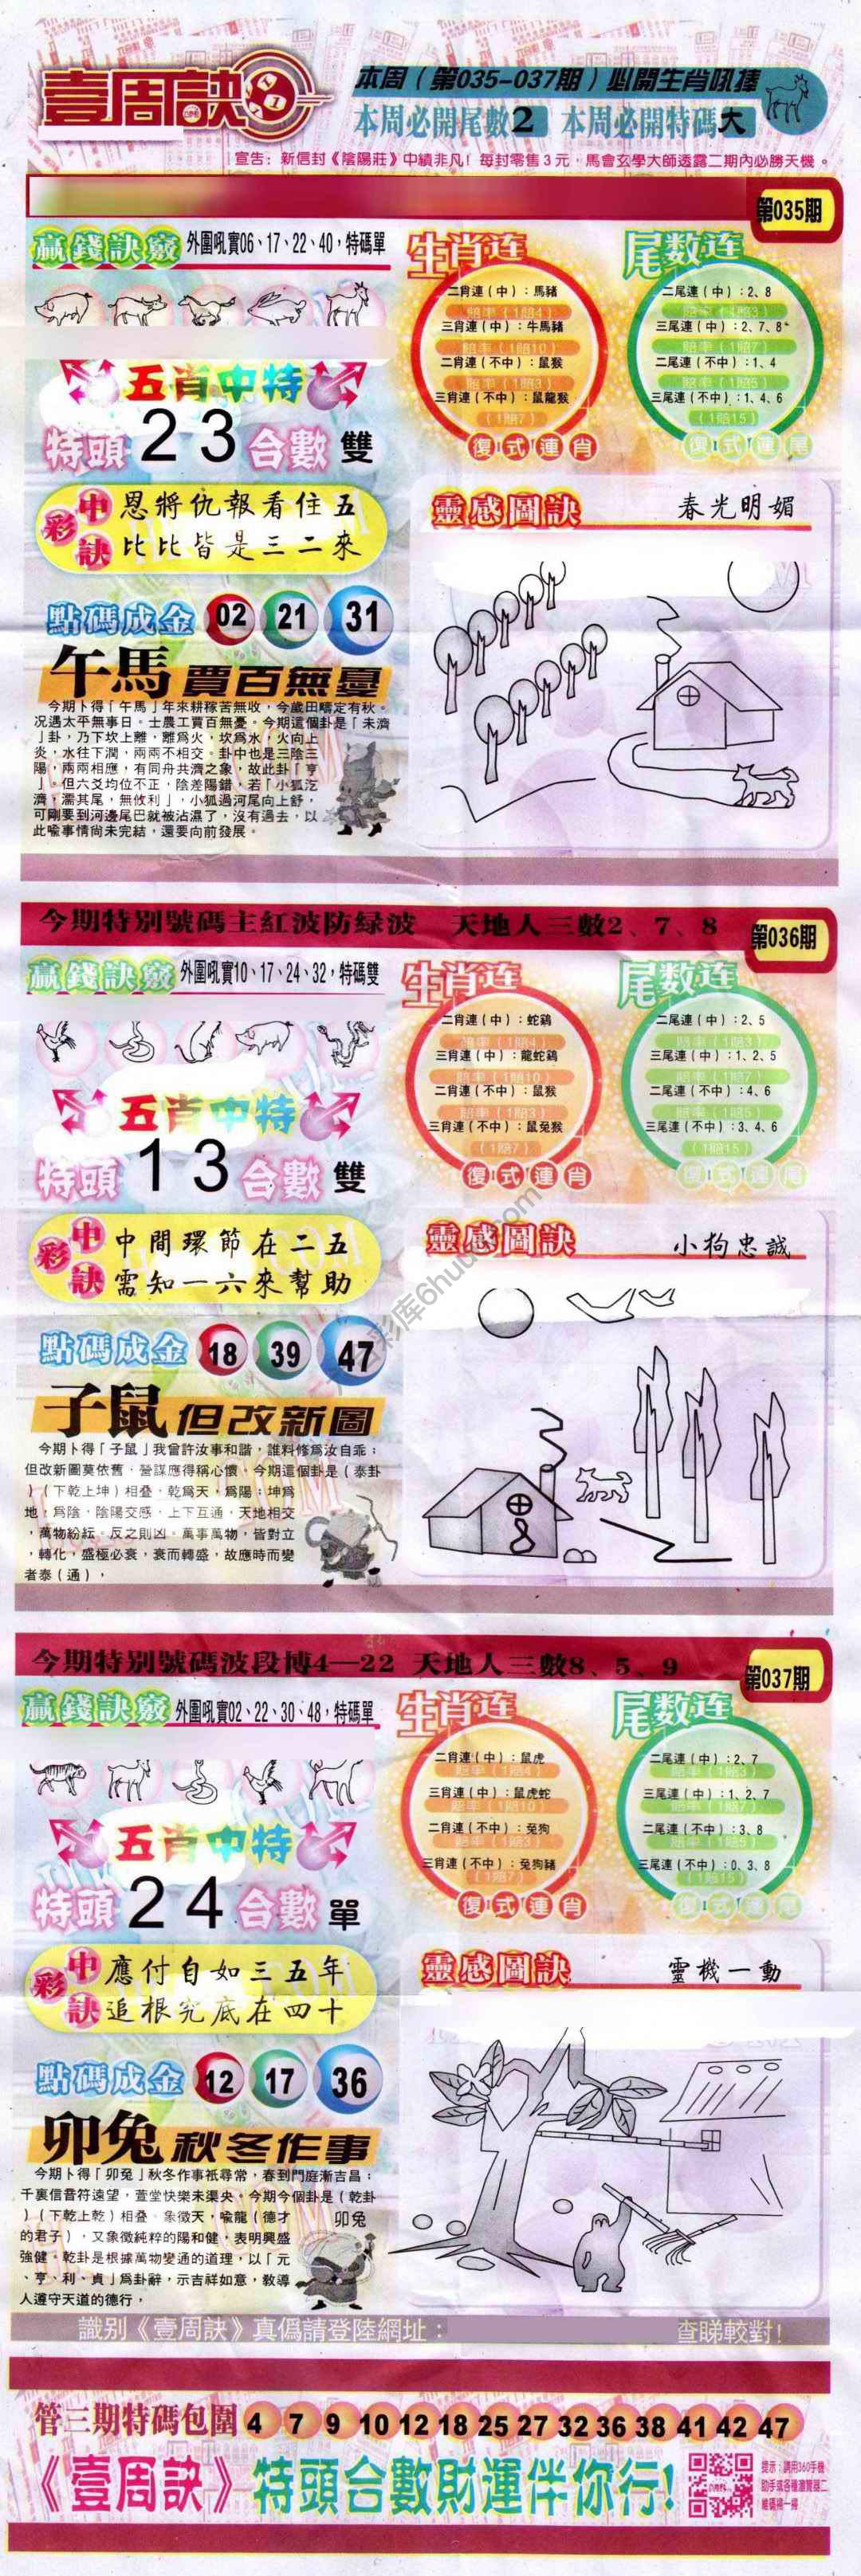 壹周訣
本周（第035-037期）必開生肖吼揰
本周必開尾數2 本周必開特碼大
宣告：新信封《陰陽莊》中績非凡！每封零售3元，馬會玄學大師透露二期內必勝天機。
第035期
贏錢訣竅 外圍吼實06、17、22、40，特碼單
五肖中特
特頭 23 合數 雙
中彩訣
恩將仇報看住五
比比皆是三二來
點碼成金 02 21 31
午馬 賈百無憂
今期卜得「午馬」年來耕稼苦無收，今歲田疇定有秋。
况遇太平無事日。士農工賈百無憂。今期這個卦是「未濟
」卦，乃下坎上離，離爲火，坎爲水，火向上
炎，水往下潤，兩兩不相交。卦中也是三陰三
陽，兩兩相應，有同舟共濟之象，故此卦「亨
」。但六爻均位不正，陰差陽錯，若「小狐汔
濟，濡其尾，無攸利」，小狐過河尾向上舒，
可剛要到河邊尾巴就被沾濕了，沒有過去，以
此喻事情尚未完結，還要向前發展。
生肖连
二肖連（中）：馬豬
賠率（1賠4）
三肖連（中）：牛馬豬
賠率（1賠10）
二肖連（不中）：鼠猴
賠率（1賠3）
三肖連（不中）：鼠龍猴
（1賠7）
復式連肖
尾数连
二尾連（中）：2、8
賠率（1賠3）
三尾連（中）：2、7、8
賠率（1賠7）
二尾連（不中）：1、4
賠率（1賠5）
三尾連（不中）：1、4、6
（1賠15）
復式連尾
靈感圖訣 春光明媚
今期特別號碼主紅波防緑波 天地人三數2、7、8
第036期
贏錢訣竅 外圍吼實10、17、24、32，特碼雙
五肖中特
特頭 13 合數 雙
中彩訣
中間環節在二五
需知一六來幫助
點碼成金 18 39 47
子鼠 但改新圖
今期卜得「子鼠」我曾許汝事和諧，誰料修爲汝自乖；
但改新圖莫依舊，營謀應得稱心懷。今期這個卦是（泰卦
）（下乾上坤）相叠。乾爲天，爲陽；坤爲
地，爲陰，陰陽交感，上下互通，天地相交
，萬物紛紜。反之則凶。萬事萬物，皆對立
，轉化，盛極必衰，衰而轉盛，故應時而變
者泰（通），
生肖连
二肖連（中）：蛇鷄
賠率（1賠4）
三肖連（中）：龍蛇鷄
賠率（1賠10）
二肖連（不中）：鼠猴
賠率（1賠3）
三肖連（不中）：鼠兔猴
（1賠7）
復式連肖
尾数连
二尾連（中）：2、5
賠率（1賠3）
三尾連（中）：1、2、5
賠率（1賠7）
二尾連（不中）：4、6
賠率（1賠5）
三尾連（不中）：3、4、6
（1賠15）
復式連尾
靈感圖訣 小狗忠誠
今期特別號碼波段博4—22 天地人三數8、5、9
第037期
贏錢訣竅 外圍吼實02、22、30、48，特碼單
五肖中特
特頭 24 合數 單
中彩訣
應付自如三五年
追根究底在四十
點碼成金 12 17 36
卯兔 秋冬作事
今期卜得「卯兔」秋冬作事衹尋常，春到門庭漸吉昌；
千裏信音符遠望，萱堂快樂未渠央。今期今個卦是（乾卦
）（下乾上乾）相叠。象徵天，喻龍（德才
的君子），又象徵純粹的陽和健，表明興盛
強健。乾卦是根據萬物變通的道理，以「元
、亨、利、貞」爲卦辭，示吉祥如意，教導
人遵守天道的德行，
卯兔
生肖连
二肖連（中）：鼠虎
賠率（1賠4）
三肖連（中）：鼠虎蛇
賠率（1賠10）
二肖連（不中）：兔狗
賠率（1賠3）
三肖連（不中）：兔狗豬
（1賠7）
復式連肖
尾数连
二尾連（中）：2、7
賠率（1賠3）
三尾連（中）：1、2、7
賠率（1賠7）
二尾連（不中）：3、8
賠率（1賠5）
三尾連（不中）：0、3、8
（1賠15）
復式連尾
靈感圖訣 靈機一動
識別《壹周訣》真僞請登陸網址： 查睇較對！
管三期特碼包圍 4 7 9 10 12 18 25 27 32 36 38 41 42 47
《壹周訣》特頭合數財運伴你行！
提示：請用360手機
助手或各種瀏覽器二
維碼掃一掃